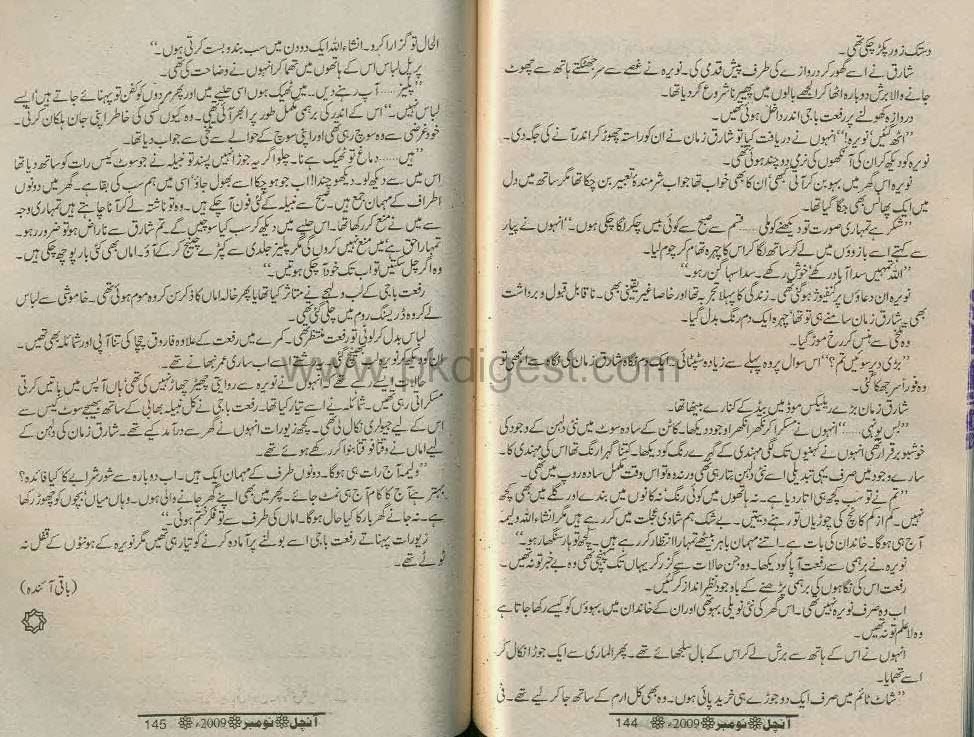 دستک زور پکڑ چکی تھی۔
شارق نے اسے گھور کر دروازے کی طرف پیش قدمی کی۔ نویرہ نے غصے سے سر جھٹکتے ہاتھ سے چھوٹ
جانے والا برش دوبارہ اٹھا کر الجھے بالوں میں پھیرنا شروع کر دیا تھا۔
دروازہ کھولنے پر رفعت باجی اندر داخل ہوئی تھیں۔
”اٹھ گئیں نویرہ!“ انہوں نے دریافت کیا تو شارق زمان نے ان کو راستہ چھوڑ کر اندر آنے کی جگہ دی۔
نویرہ کو دیکھ کر ان کی آنکھوں کی نرمی دو چند ہوئی تھی۔
نویرہ اس گھر میں بہو بن کر آئی تھی، اُن کا بھی خواب تھا جو اب شرمندۂ تعبیر بن چکا تھا مگر ساتھ میں دل
میں ایک پھانس بھی چبھ گیا تھا۔
”شکر ہے تمہاری صورت تو دیکھنے کو ملی...... قسم سے صبح سے کوئی بیس چکر لگا چکی ہوں۔“ انہوں نے پیار
سے کہتے اسے بازوؤں میں لے کر ساتھ لگا کر اس کا چہرہ تھام کر چوم لیا۔
”اللہ تمہیں سدا آباد رکھے، خوش رکھے۔ سدا سہاگن رہو۔“
نویرہ ان دعاؤں پر کنفیوژ ہو گئی تھی۔ زندگی کا پہلا تجربہ تھا اور خاصا غیر یقینی بھی۔ ناقابل قبول و برداشت
بھی۔ شارق زمان سامنے ہی تو تھا، چہرہ ایک دم رنگ بدل گیا۔
وہ تلخی سے ہنس کر رخ موڑ گیا۔
”بڑی دیر سوئیں تم؟“ اس سوال پر وہ پہلے سے زیادہ سٹپٹائی۔ ایک دم نگاہ شارق زمان کی نگاہ سے الجھی تو
وہ فوراً سر جھکا گئی۔
شارق زمان بڑے ریلیکس موڈ میں بیڈ کے کنارے بیٹھا تھا۔
”بس یونہی......“ انہوں نے مسکرا کر نکھرا نکھرا وجود دیکھا۔ کاٹن کے سادہ سوٹ میں نئی دلہن کے وجود کی
خوشبو برقرار تھی انہوں نے کہنیوں تک لگی مہندی کے گہرے رنگ کو دیکھا۔ کتنا گہرا رنگ تھا اس کی مہندی کا۔
سارے وجود میں صرف یہی تبدیلی اسے نئی دلہن بتا رہی تھی ورنہ وہ تو اس وقت مکمل سادہ روپ میں تھی۔
”تم نے تو سب کچھ ہی اتار دیا ہے۔ نہ ہاتھوں میں کوئی رنگ نہ کانوں میں بندے اور گلے میں بھی کچھ
نہیں۔ کم از کم کانچ کی چوڑیاں تو رہنے دیتیں۔ بے شک ہم شادی عجلت میں کر رہے ہیں مگر انشاء اللہ ولیمہ
آج ہی ہوگا۔ خاندان کی بات ہے۔ اتنے مہمان باہر بیٹھے تمہارا انتظار کر رہے ہیں۔ کچھ تو ہار سنگھار ہو۔“
نویرہ نے برہمی سے رفعت آپا کو دیکھا۔ وہ جن حالات سے گزر کر یہاں تک پہنچی تھی وہ بے خبر تو نہ تھیں۔
رفعت اس کی نگاہوں کی برہمی پڑھنے کے باوجود نظر انداز کر گئیں۔
اب وہ صرف نویرہ نہیں تھی۔ اس گھر کی نئی نویلی بہو تھی اور ان کے خاندان میں بہوؤں کو کیسے رکھا جاتا ہے
وہ لاعلم تو نہ تھیں۔
انہوں نے اس کے ہاتھ سے برش لے کر اس کے بال سلجھائے تھے۔ پھر الماری سے ایک جوڑا نکال کر
اسے تھمایا۔
”شاٹ ٹائم میں صرف ایک دو جوڑے ہی خرید پائی ہوں۔ وہ بھی کل ارم کے ساتھ جا کر لیے تھے۔ فی
آنچل نومبر 2009ء 144
الحال تو گزارا کرو۔ انشاء اللہ ایک دو دن میں سب بندوبست کرتی ہوں۔“
پرپل لباس اس کے ہاتھوں میں تھما کر انہوں نے وضاحت کی تھی۔
”پلیز...... آپ رہنے دیں۔ میں ٹھیک ہوں اسی حلیے میں اور پھر مردوں کو کفن تو پہنائے جاتے ہیں ایسے
لباس نہیں۔“ اس کے اندر کی برہمی مکمل طور پر ابھر آئی تھی۔ وہ کیوں کسی کی خاطر اپنی جان ہلکان کرتی۔
خود غرضی سے وہ سوچ رہی تھی اور اپنی سوچ کے حوالے سے تلخی سے جواب دیا تھا۔
”ہیں...... دماغ تو ٹھیک ہے نا۔ چلو اگر یہ جوڑا نہیں پسند تو نبیلہ نے جو سوٹ کیس رات کو ساتھ دیا تھا
اس میں سے دیکھ لو۔ دیکھو چندا! اب جو ہو چکا اسے بھول جاؤ، اسی میں ہم سب کی بقا ہے۔ گھر میں دونوں
اطراف کے مہمان جمع ہیں۔ صبح سے نبیلہ کے کئی فون آ چکے ہیں۔ وہ تو ناشتہ لے کر آنا چاہتے ہیں تمہاری وجہ
سے میں نے منع کر رکھا تھا۔ اس حلیے میں دیکھ کر سب کیا سوچیں گے۔ تم شارق سے ناراض ہو تو ضرور رہو۔
تمہارا حق ہے میں منع نہیں کروں گی مگر پلیز جلدی سے کپڑے چینج کر کے آؤ۔ اماں بھی کئی بار پوچھ چکی ہیں۔
وہ اگر چل سکتیں تو اب تک خود آ چکی ہوتیں۔“
رفعت باجی کے لب و لہجے نے متاثر کیا تھا یا پھر خالہ اماں کا ذکر سن کر وہ موم ہوئی تھی۔ خاموشی سے لباس
لے کر وہ ڈریسنگ روم میں چلی گئی تھی۔
لباس بدل کر لوٹی تو رفعت منتظر تھی۔ کمرے میں رفعت کے علاوہ فاروق چچا کی ثنا آپی اور شمائلہ بھی تھیں۔
مسکراتی رہی تھیں۔ شمائلہ نے اسے تیار کیا تھا۔ رفعت باجی نے کل نبیلہ بھابی کے ساتھ بھیجے سوٹ کیس سے
اس کے لیے جیولری نکال لی تھی۔ کچھ زیورات انہوں نے گھر سے درآمد کیے تھے۔ شارق زمان کی دلہن کے
لیے اماں نے وقتاً فوقتاً بنوا کر رکھے ہوئے تھے۔
”ولیمہ آج رات ہی ہوگا۔ دونوں طرف کے مہمان ایک ہیں۔ اب دوبارہ سے شور شرابے کا کیا فائدہ؟
بہتر ہے آج کا کام آج ہی نمٹ جائے۔ پھر میں بھی اپنے گھر جانے والی ہوں۔ وہاں میاں بچوں کو چھوڑ رکھا
ہے۔ نہ جانے گھر بار کا کیا حال ہوگا۔ اماں کی طرف سے تو فکر ختم ہوئی۔“
زیورات پہناتے رفعت باجی اسے بولنے پر آمادہ کرنے کو تیار ہی تھیں مگر نویرہ کے ہونٹوں کے قفل نہ
ٹوٹے تھے۔
(باقی آئندہ)
آنچل نومبر 2009ء 145
www.pkdigest.com